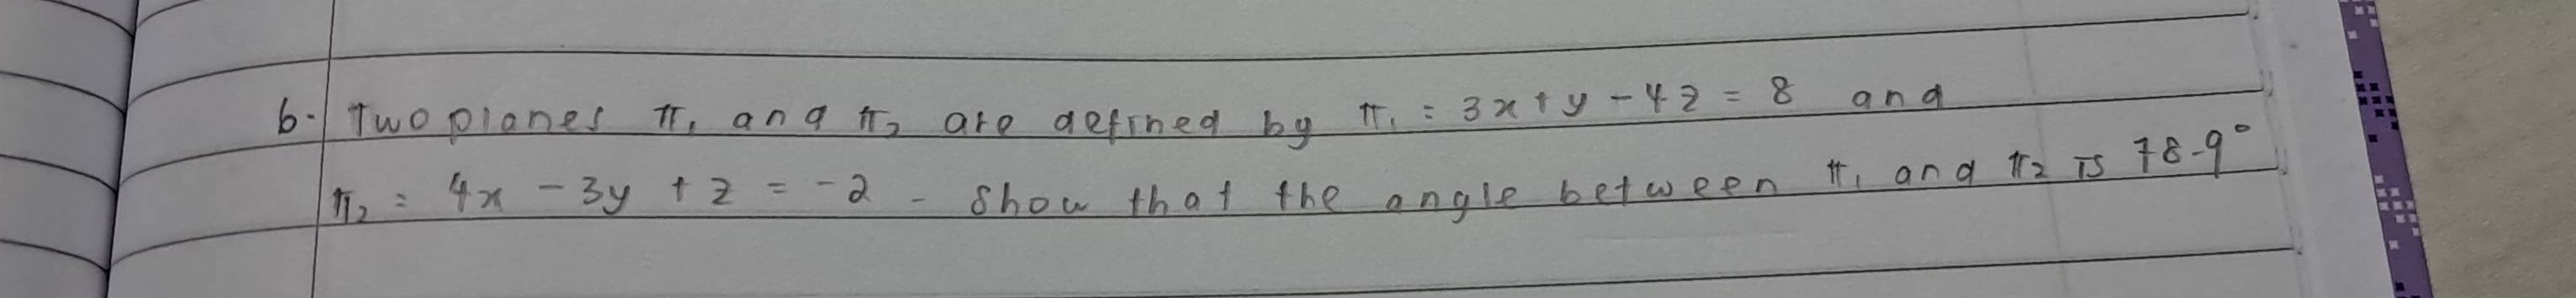 b. Two planes π₁ and π₂ are defined by π₁ : 3x + y - 4z = 8 and
π₂ : 4x - 3y + z = -2 . Show that the angle between π₁ and π₂ is 78.9°